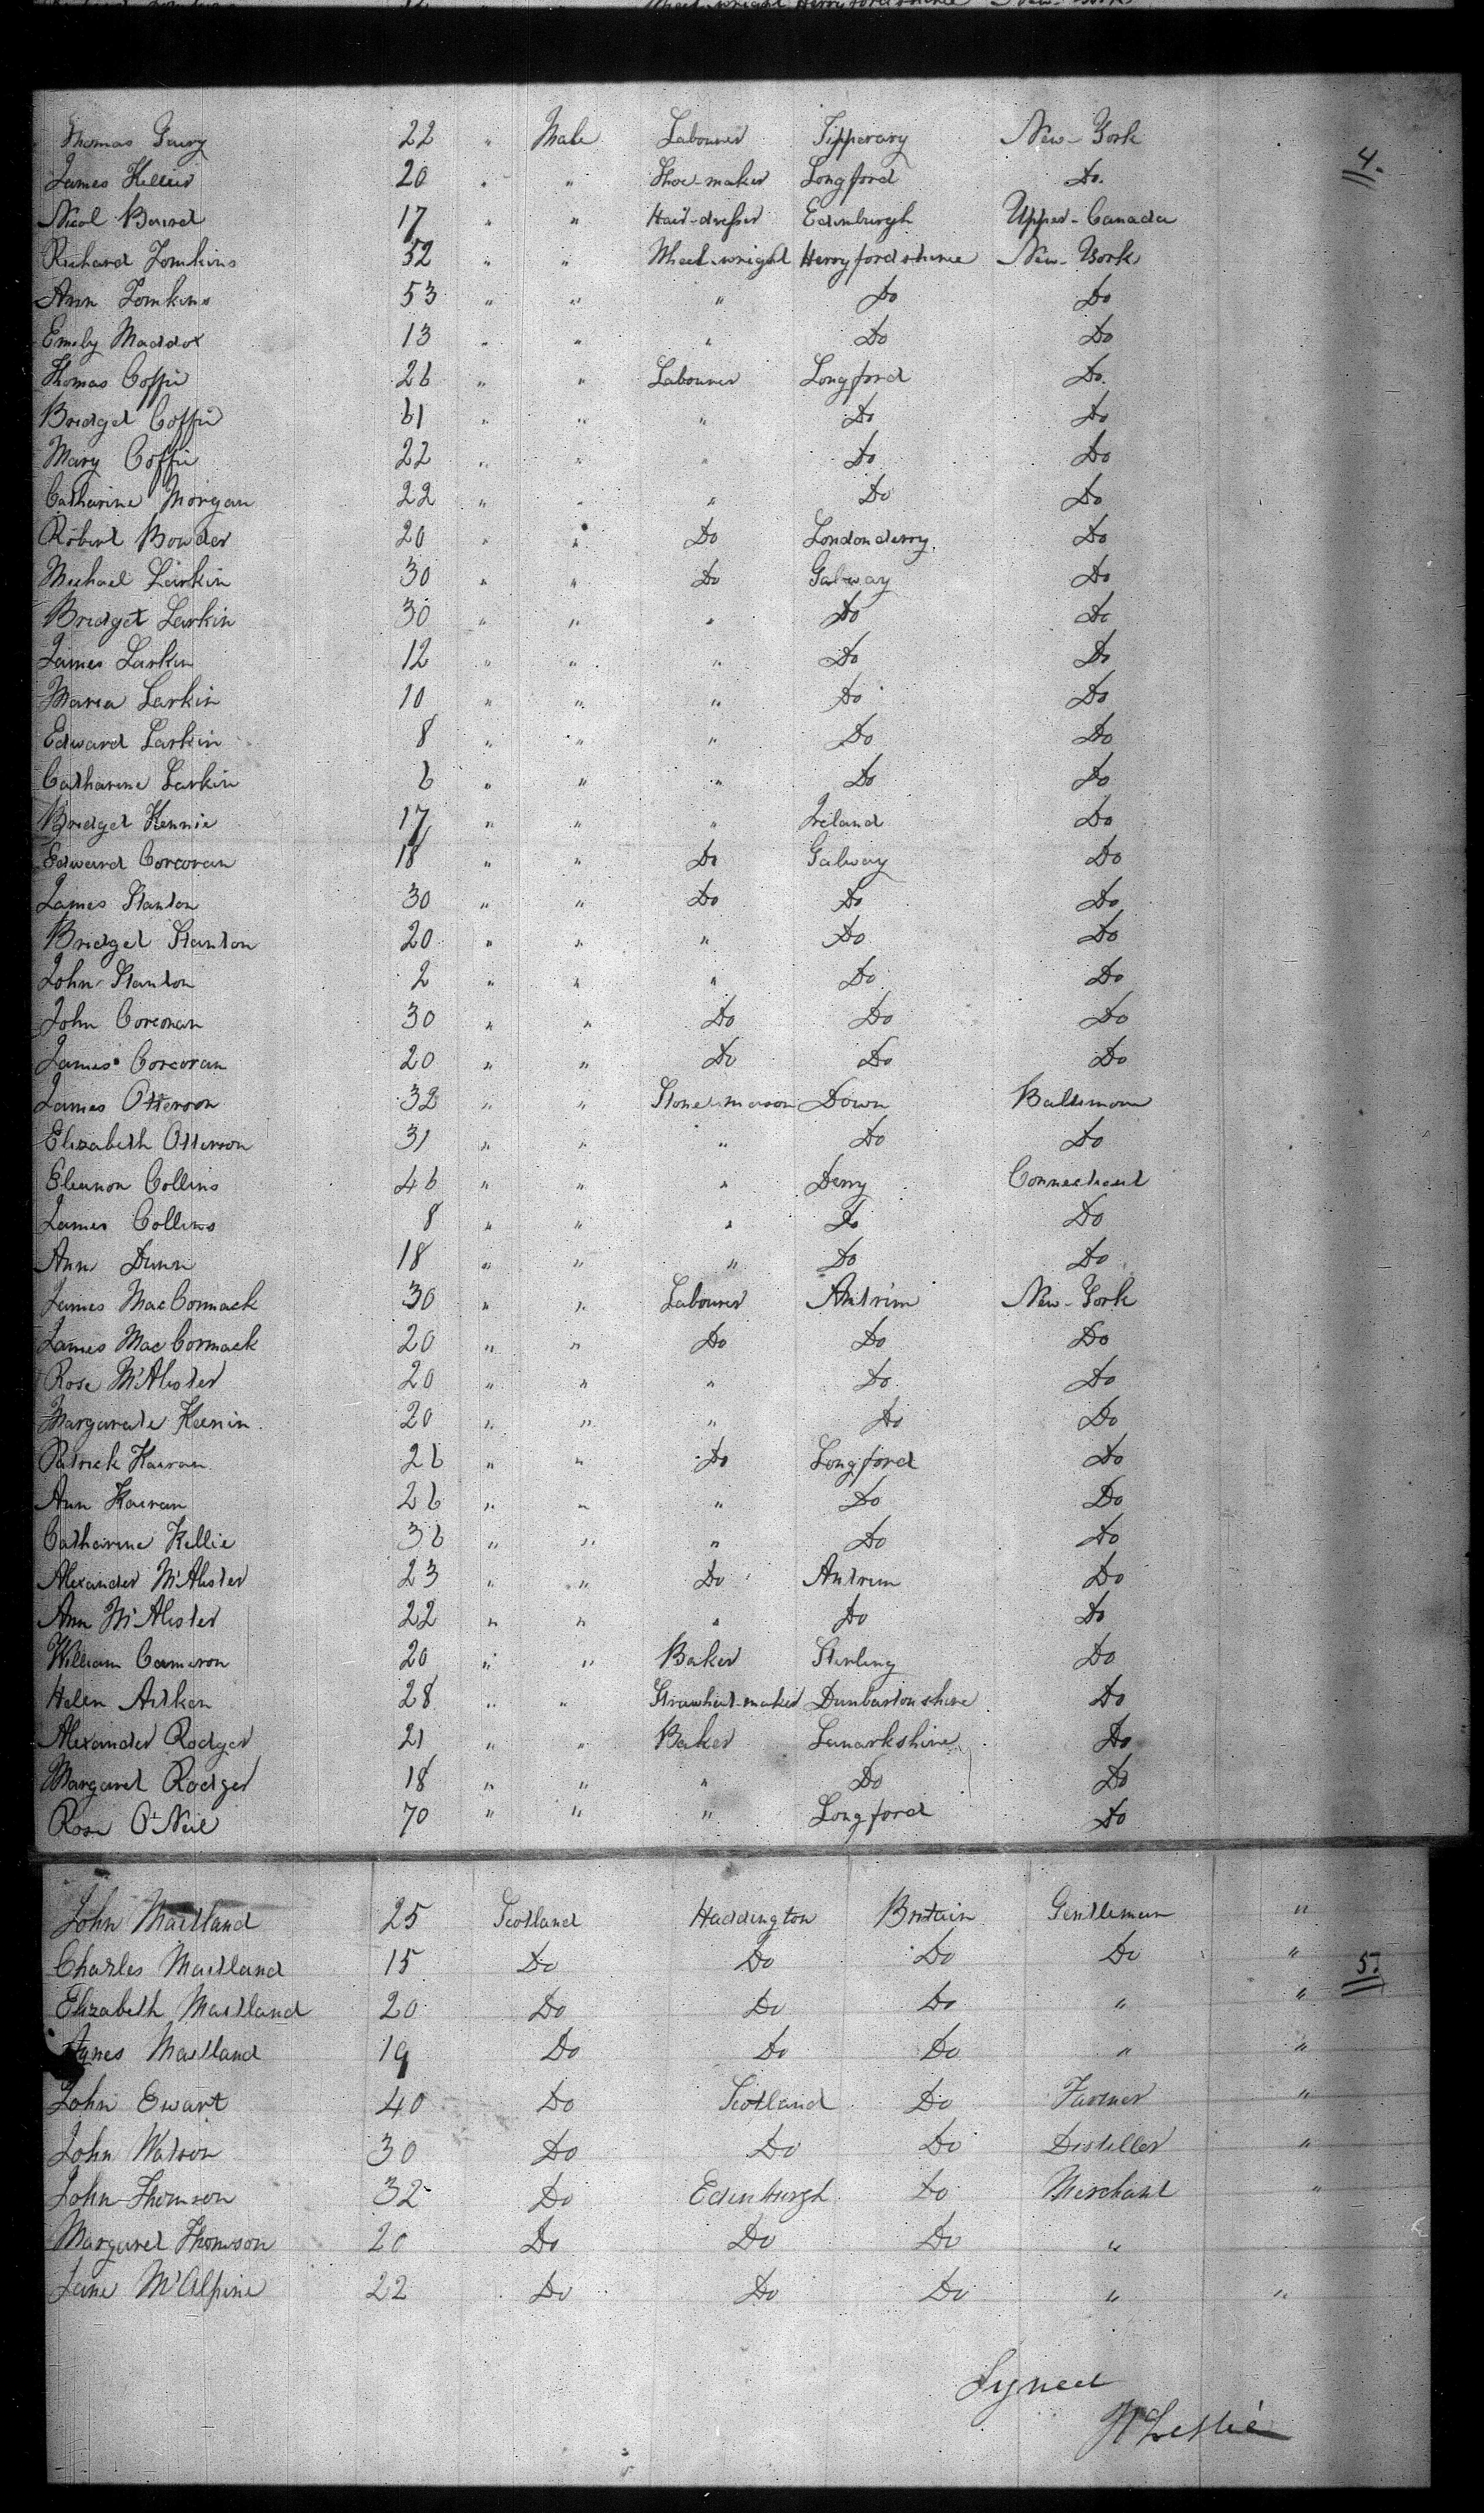 Wheel-wright Herryfordshire New-York
Thomas 22 " Male Labourer Tipperary New-York
4.
James Keller 20 " " Shoe-maker Longford Do.
Nicol Baird 17 " " Hair-dresser Edinburgh Upper-Canada
Richard Tomkins 52 " " Wheel-wright Herryfordshire New-York
Ann Tomkins 53 " " " Do Do
Emily Maddox 13 " " " Do Do
Thomas Coffie 26 " " Labourer Longford Do.
Bridget Coffie 61 " " " Do Do
Mary Coffie 22 " " " Do Do
Catharine Morgan 22 " " " Do Do
Robert Bowder 20 " " Do Londonderry. Do
Michael Larkin 30 " " Do Galway Do
Bridget Larkin 30 " " " Do Do
James Larkin 12 " " " Do Do
Maria Larkin 10 " " " Do Do
Edward Larkin 8 " " " Do Do
Catharine Larkin 6 " " " Do Do
Bridget Kennie 17 " " " Ireland Do
Edward Corcoran 18 " " Do Galway Do
James Stanton 30 " " Do Do Do
Bridget Stanton 20 " " " Do Do
John Stanton 2 " " " Do Do
John Corcoran 30 " " Do Do Do
James Corcoran 20 " " Do Do Do
James Otterson 32 " " Stone-mason Down Baltimore
Elizabeth Otterson 31 " " " Do Do
Eleanor Collins 46 " " " Derry Connecticut
James Collins 8 " " " Do Do
Ann Dunn 18 " " " Do Do
James MacCormack 30 " " Labourer Antrim New-York
James MacCormack 20 " " Do Do Do
Rose McAlister 20 " " " Do Do
Margarate Keenin 20 " " " Do Do
Patrick Kairan 26 " " Do Longford Do
Ann Kairan 26 " " " Do Do
Catharine Kellie 36 " " " Do Do
Alexander McAlister 23 " " Do Antrim Do
Ann McAlister 22 " " " Do Do
William Cameron 20 " " Baker Sterling Do
Helen Aitken 28 " " Strawhat-maker Dunbartonshire Do
Alexander Rodger 21 " " Baker Lanarkshire Do
Margaret Rodger 18 " " " Do Do
Rose O'Neil 70 " " " Longford Do
John Maitland 25 Scotland Haddington Britain Gentleman "
Charles Maitland 15 Do Do Do Do "
5.
Elizabeth Maitland 20 Do Do Do " "
Agnes Maitland 19 Do Do Do " "
John Ewart 40 Do Scotland Do Farmer "
John Watson 30 Do Do Do Distiller "
John Thomson 32 Do Edinburgh Do Merchant "
Margaret Thomson 20 Do Do Do "
Jane McAlpine 22 Do Do Do " "
Syned
Leslie